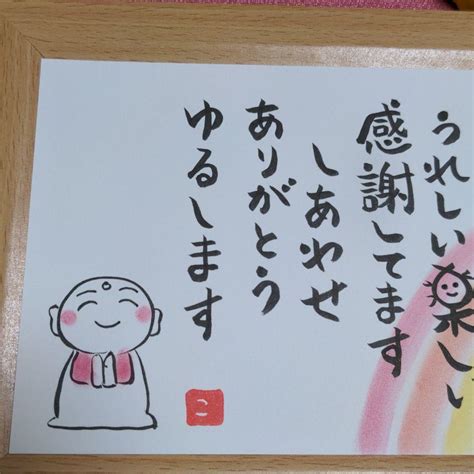 うれしい楽しい
感謝してます
しあわせ
ありがとう
ゆるします
こ